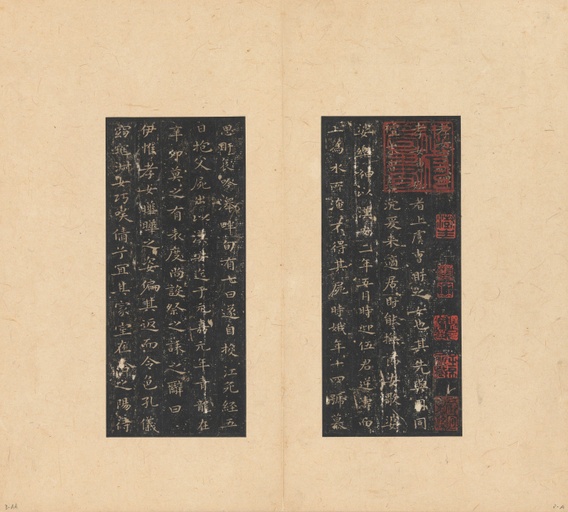 孝女曹娥者上虞曹盱之女也其先與周同
荒爰來適居盱能撫節安歌婆
娑樂神以漢安二年五月時迎伍君逆濤而
上為水所淹不得其屍時娥年十四號慕
思盱哀吟澤畔旬有七日遂自投江死經五
日抱父屍出以漢安迄于元嘉元年青龍在
辛卯莫之有表度尚設祭之誄之辭曰
伊惟孝女曄曄之姿偏其返而令色孔儀
窈窕淑女巧笑倩兮宜其家室在洽之陽待